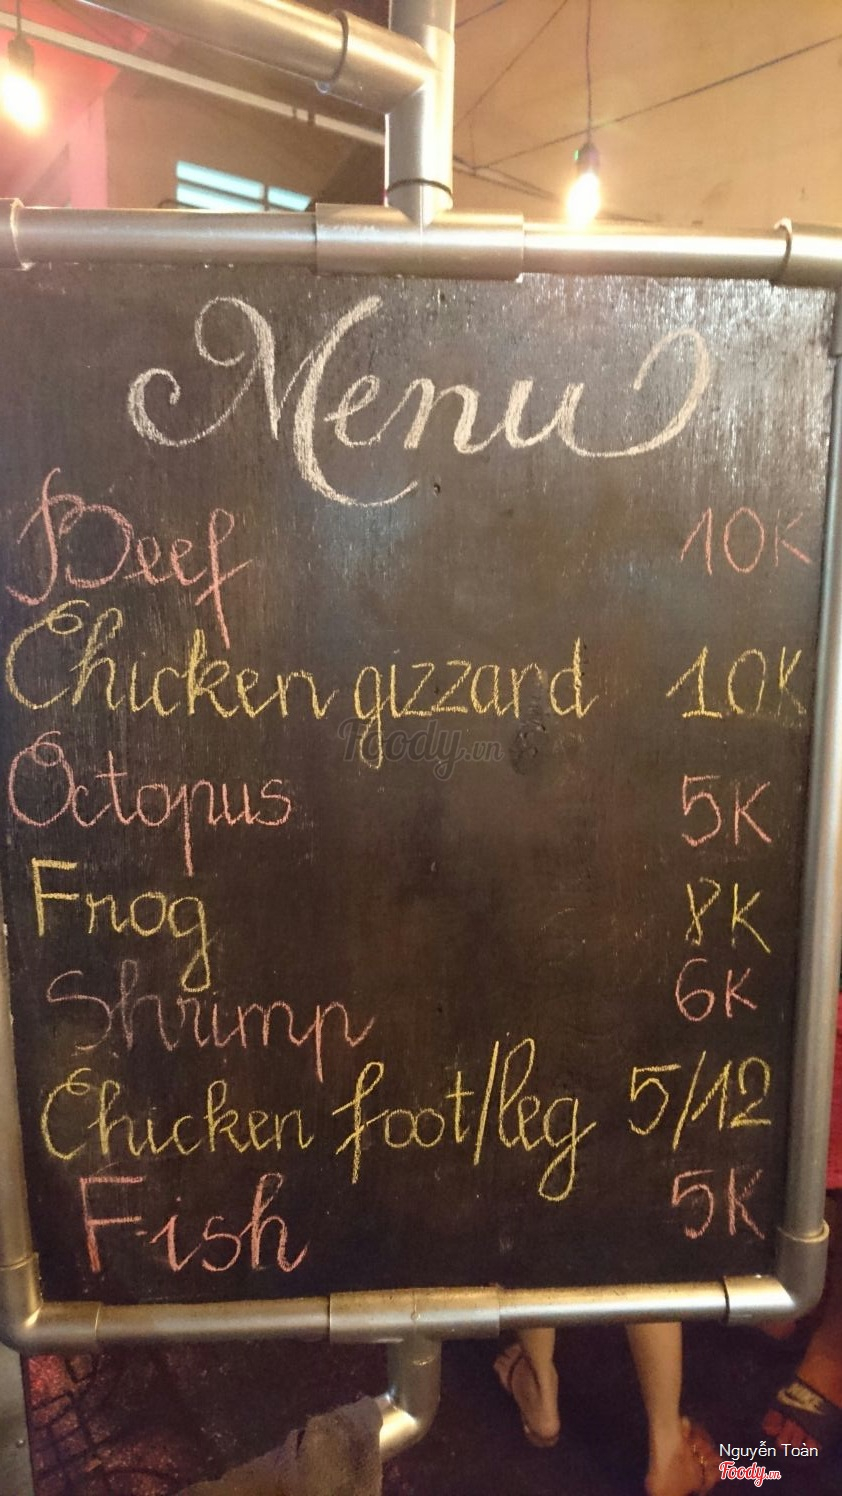 Menu
Beef 10K
Chicken gizzard 10K
Foody.vn
Octopus 5K
Frog 8K
Shrimp 6K
Chicken foot/leg 5/12
Fish 5K
Nguyễn Toàn
Foody.vn